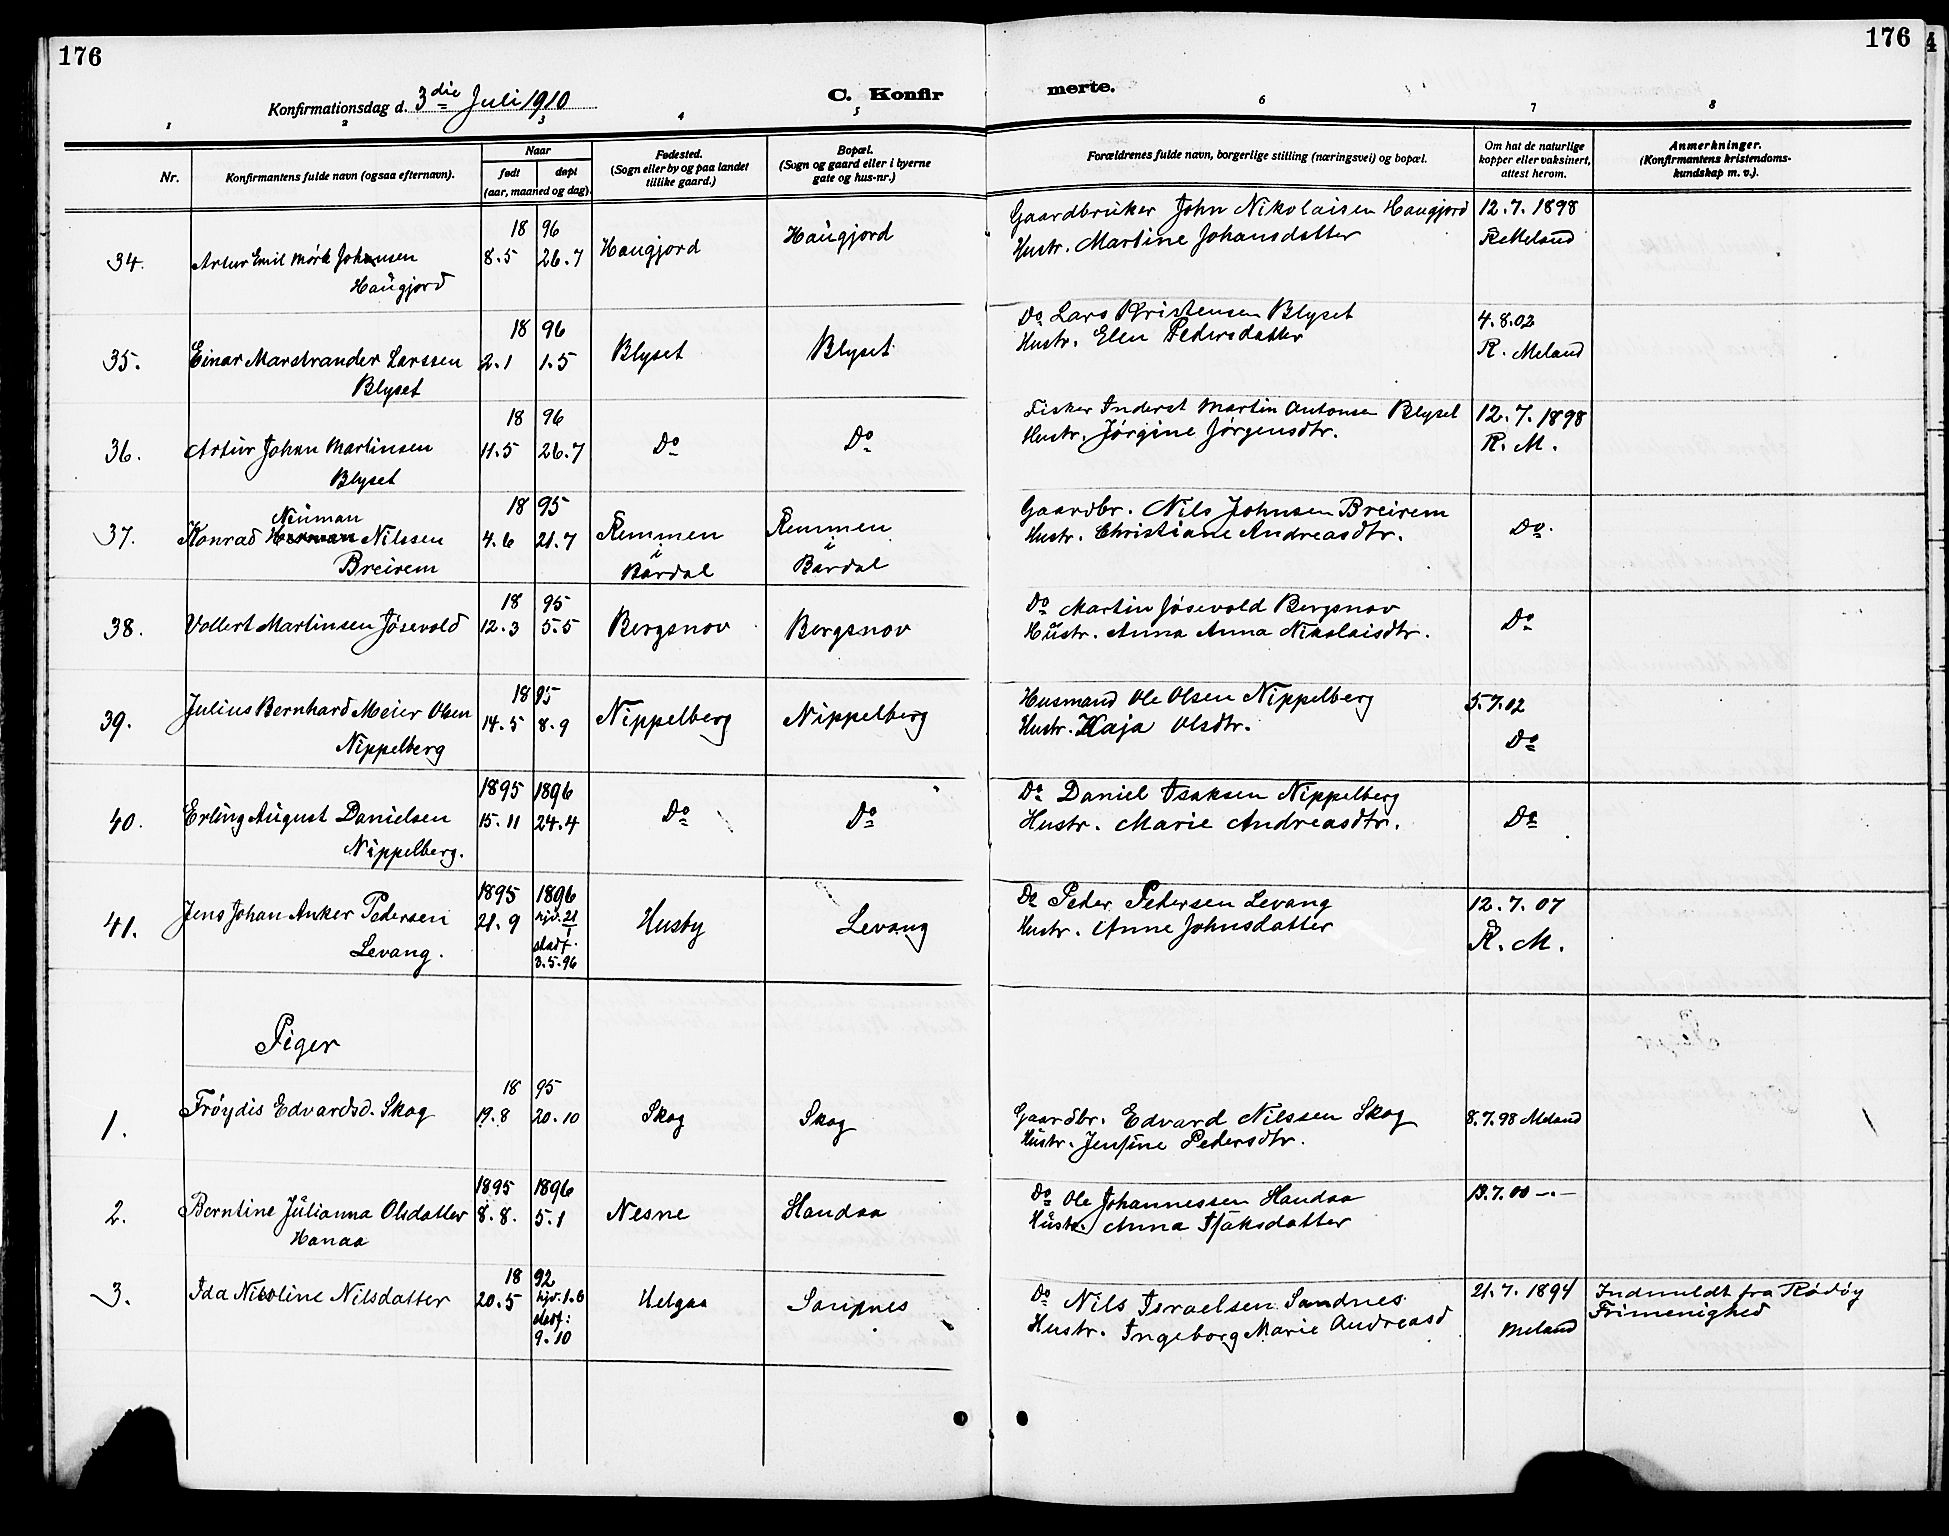 176
176
Konfirmationsdag d. 3die Juli 1910
C. Konfir
merte.
1
2
3
4
5
6
7
8
Nr.
Konfirmantens fulde navn (ogsaa efternavn).
Naar
født
døpt
(aar, maaned og dag).
Fødested.
(Sogn eller by og paa landet
tillike gaard.)
Bopæl.
(Sogn og gaard eller i byerne
gate og hus-nr.)
Forældrenes fulde navn, borgerlige stilling (næringsvei) og bopæl.
Om hat de naturlige
kopper eller vaksinert,
attest herom.
Anmerkninger.
(Konfirmantens kristendoms-
kundskap m. v.).
34. Artur Emil Mørk Johansen
Haugjord
18 96
8.5 26.7
Haugjord
Haugjord
Gaardbruker John Nikolaisen Haugjord
Hustr. Martine Johansdatter
12.7.1898
R Meland
35. Einar Marstrander Larssen
Blyset
18 96
2.1 1.5
Blyset
Blyset
Do Lars Kristensen Blyset
Hustr. Elen Pedersdatter
4.8.02
R. Meland
36. Artur Johan Martinsen
Blyset
18 96
11.5 26.7
Do
Do
Fisker Inderst Martin Antonsen Blyset
Hustr. Jørgine Jørgensdtr.
12.7.1898
R. M.
37. Konrad Herman Nilssen
Neuman
Breirem
18 95
4.6 21.7
Remmen
i
Bardal
Remmen
i
Bardal
Gaardbr. Nils Johnsen Breirem
Hustr. Christiane Andreasdtr.
Do.
38. Vollert Martinsen Jøsevold
18 95
12.3 5.5
Bergsnov
Bergsnov
Do Martin Jøsevold Bergsnov
Hustr. Anna Anna Nikolaisdtr.
Do
39. Julius Bernhard Meier Olsen
Nippelberg
18 95
14.5 8.9
Nippelberg
Nippelberg
Husmand Ole Olsen Nippelberg
Hustr. Kaja Olsdtr.
5.7.02
Do
40. Erling August Danielsen
Nippelberg.
1895 1896
15.11 24.4
Do
Do
Do Daniel Isaksen Nippelberg
Hustr. Marie Andreasdtr.
Do
41. Jens Johan Anker Pedersen
Levang.
1895 1896
21.9 hjd. 21/1
stadf.
3.5.96
Husby
Levang
Do Peder Pedersen Levang
Hustr. Anne Johnsdatter
12.7.07
R. M.
Piger
1. Frøydis Edvardsd. Skog
18 95
19.8 20.10
Skog
Skog
Gaardbr. Edvard Nilssen Skog
Hustr. Jensine Pedersdtr.
8.7.98 Meland
2. Berntine Julianna Olsdatter
Hanaa
1895 1896
8.8. 5.1
Nesne
Handaa
Do Ole Johannessen Handaa
Hustr. Anna Isaksdatter
13.7.00 -.-
3. Ida Nicoline Nilsdatter
18 92
20.5 hjd. 1.6
stadf:
9.10
Helgaa
Do Nils Israelsen Sandnes
Hustr. Ingeborg Marie Andreasd
21.7.1894
Meland
Indmeldt fra Rødøy
Frimenighed